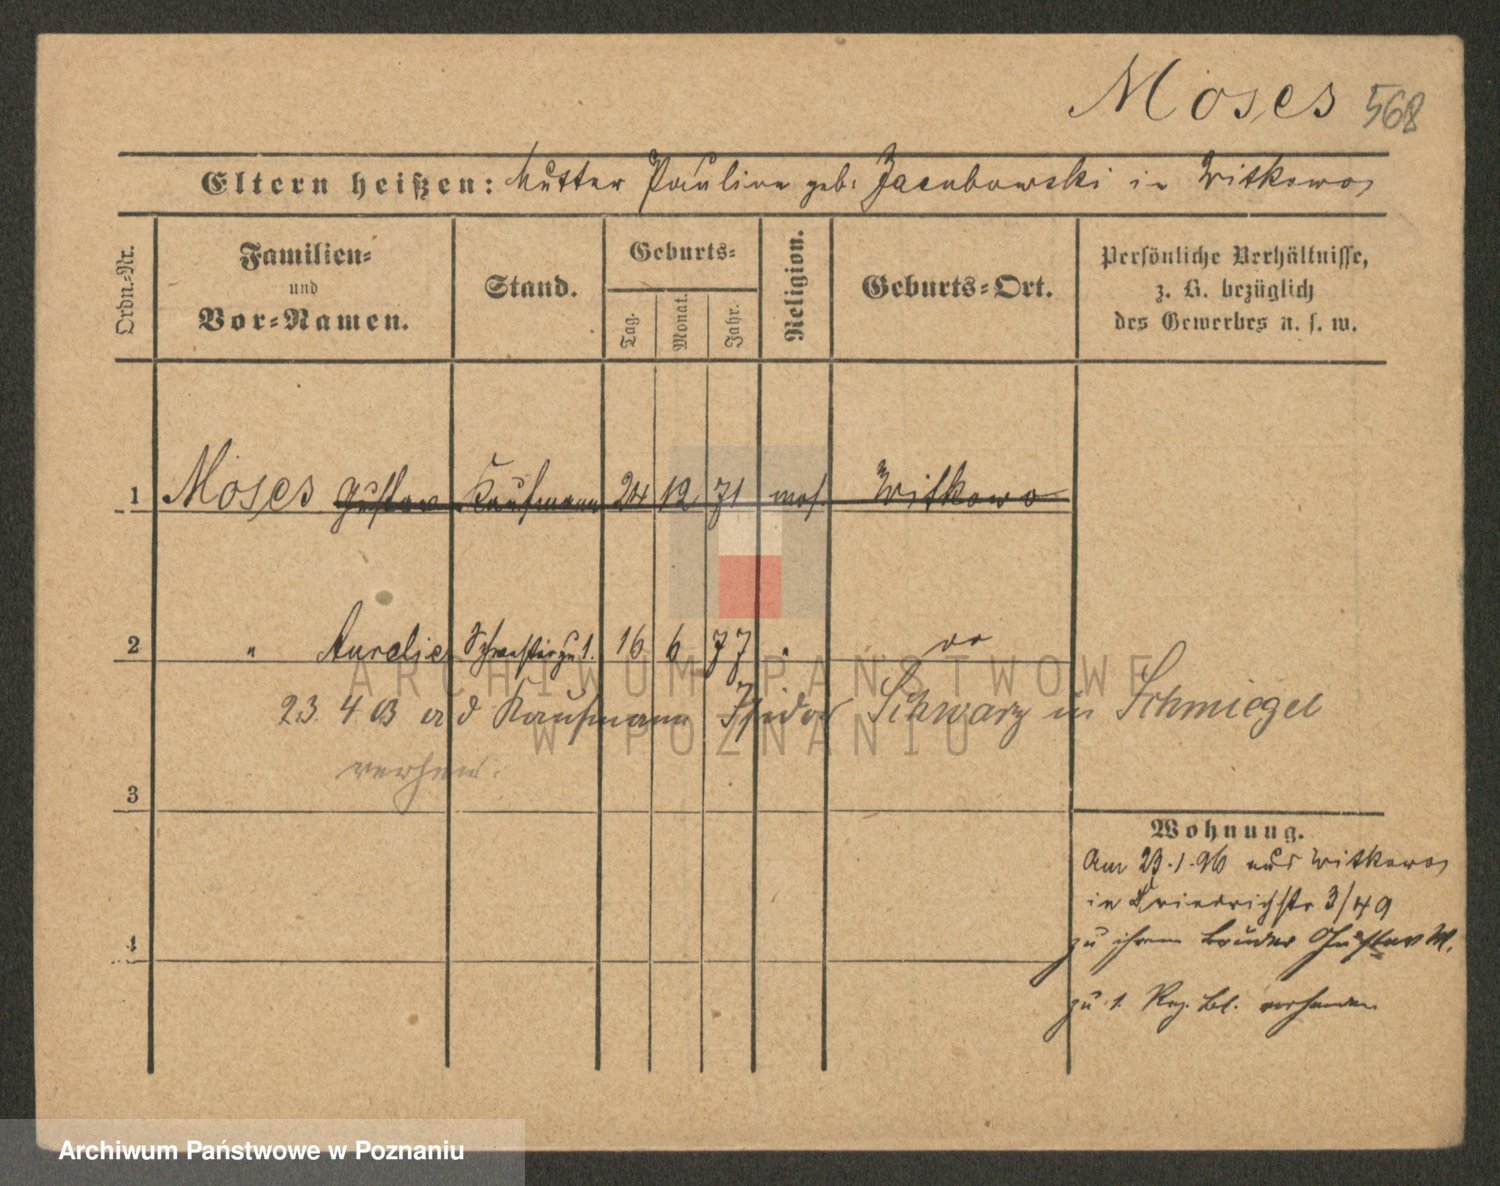 Moses 568
Eltern heißen: Mutter Pauline geb. Jacubowski in Witkowo
Ordn.-Nr.
Familien-
und
Vor-Namen.
Stand.
Geburts-
Tag.
Monat.
Jahr.
Religion.
Geburts-Ort.
Persönliche Verhältnisse,
z. B. bezüglich
des Gewerbes u. s. w.
1 Moses Gustav Kaufmann 24 12 71 mos. Witkowo
2 " Aurelie Schwester zu 1. 16 6 77 " do
23 4 03 a d Kaufmann Isidor Schwarz in Schmiegel
verheir.
3
Wohnung.
Am 29.1.96 aus Witkowo
in Friedrichstr 3/49
zu ihrem Bruder Gustav M.
4
zu 1. Reg. Bl. vorhanden
ARCHIWUM PAŃSTWOWE
W POZNANIU
Archiwum Państwowe w Poznaniu